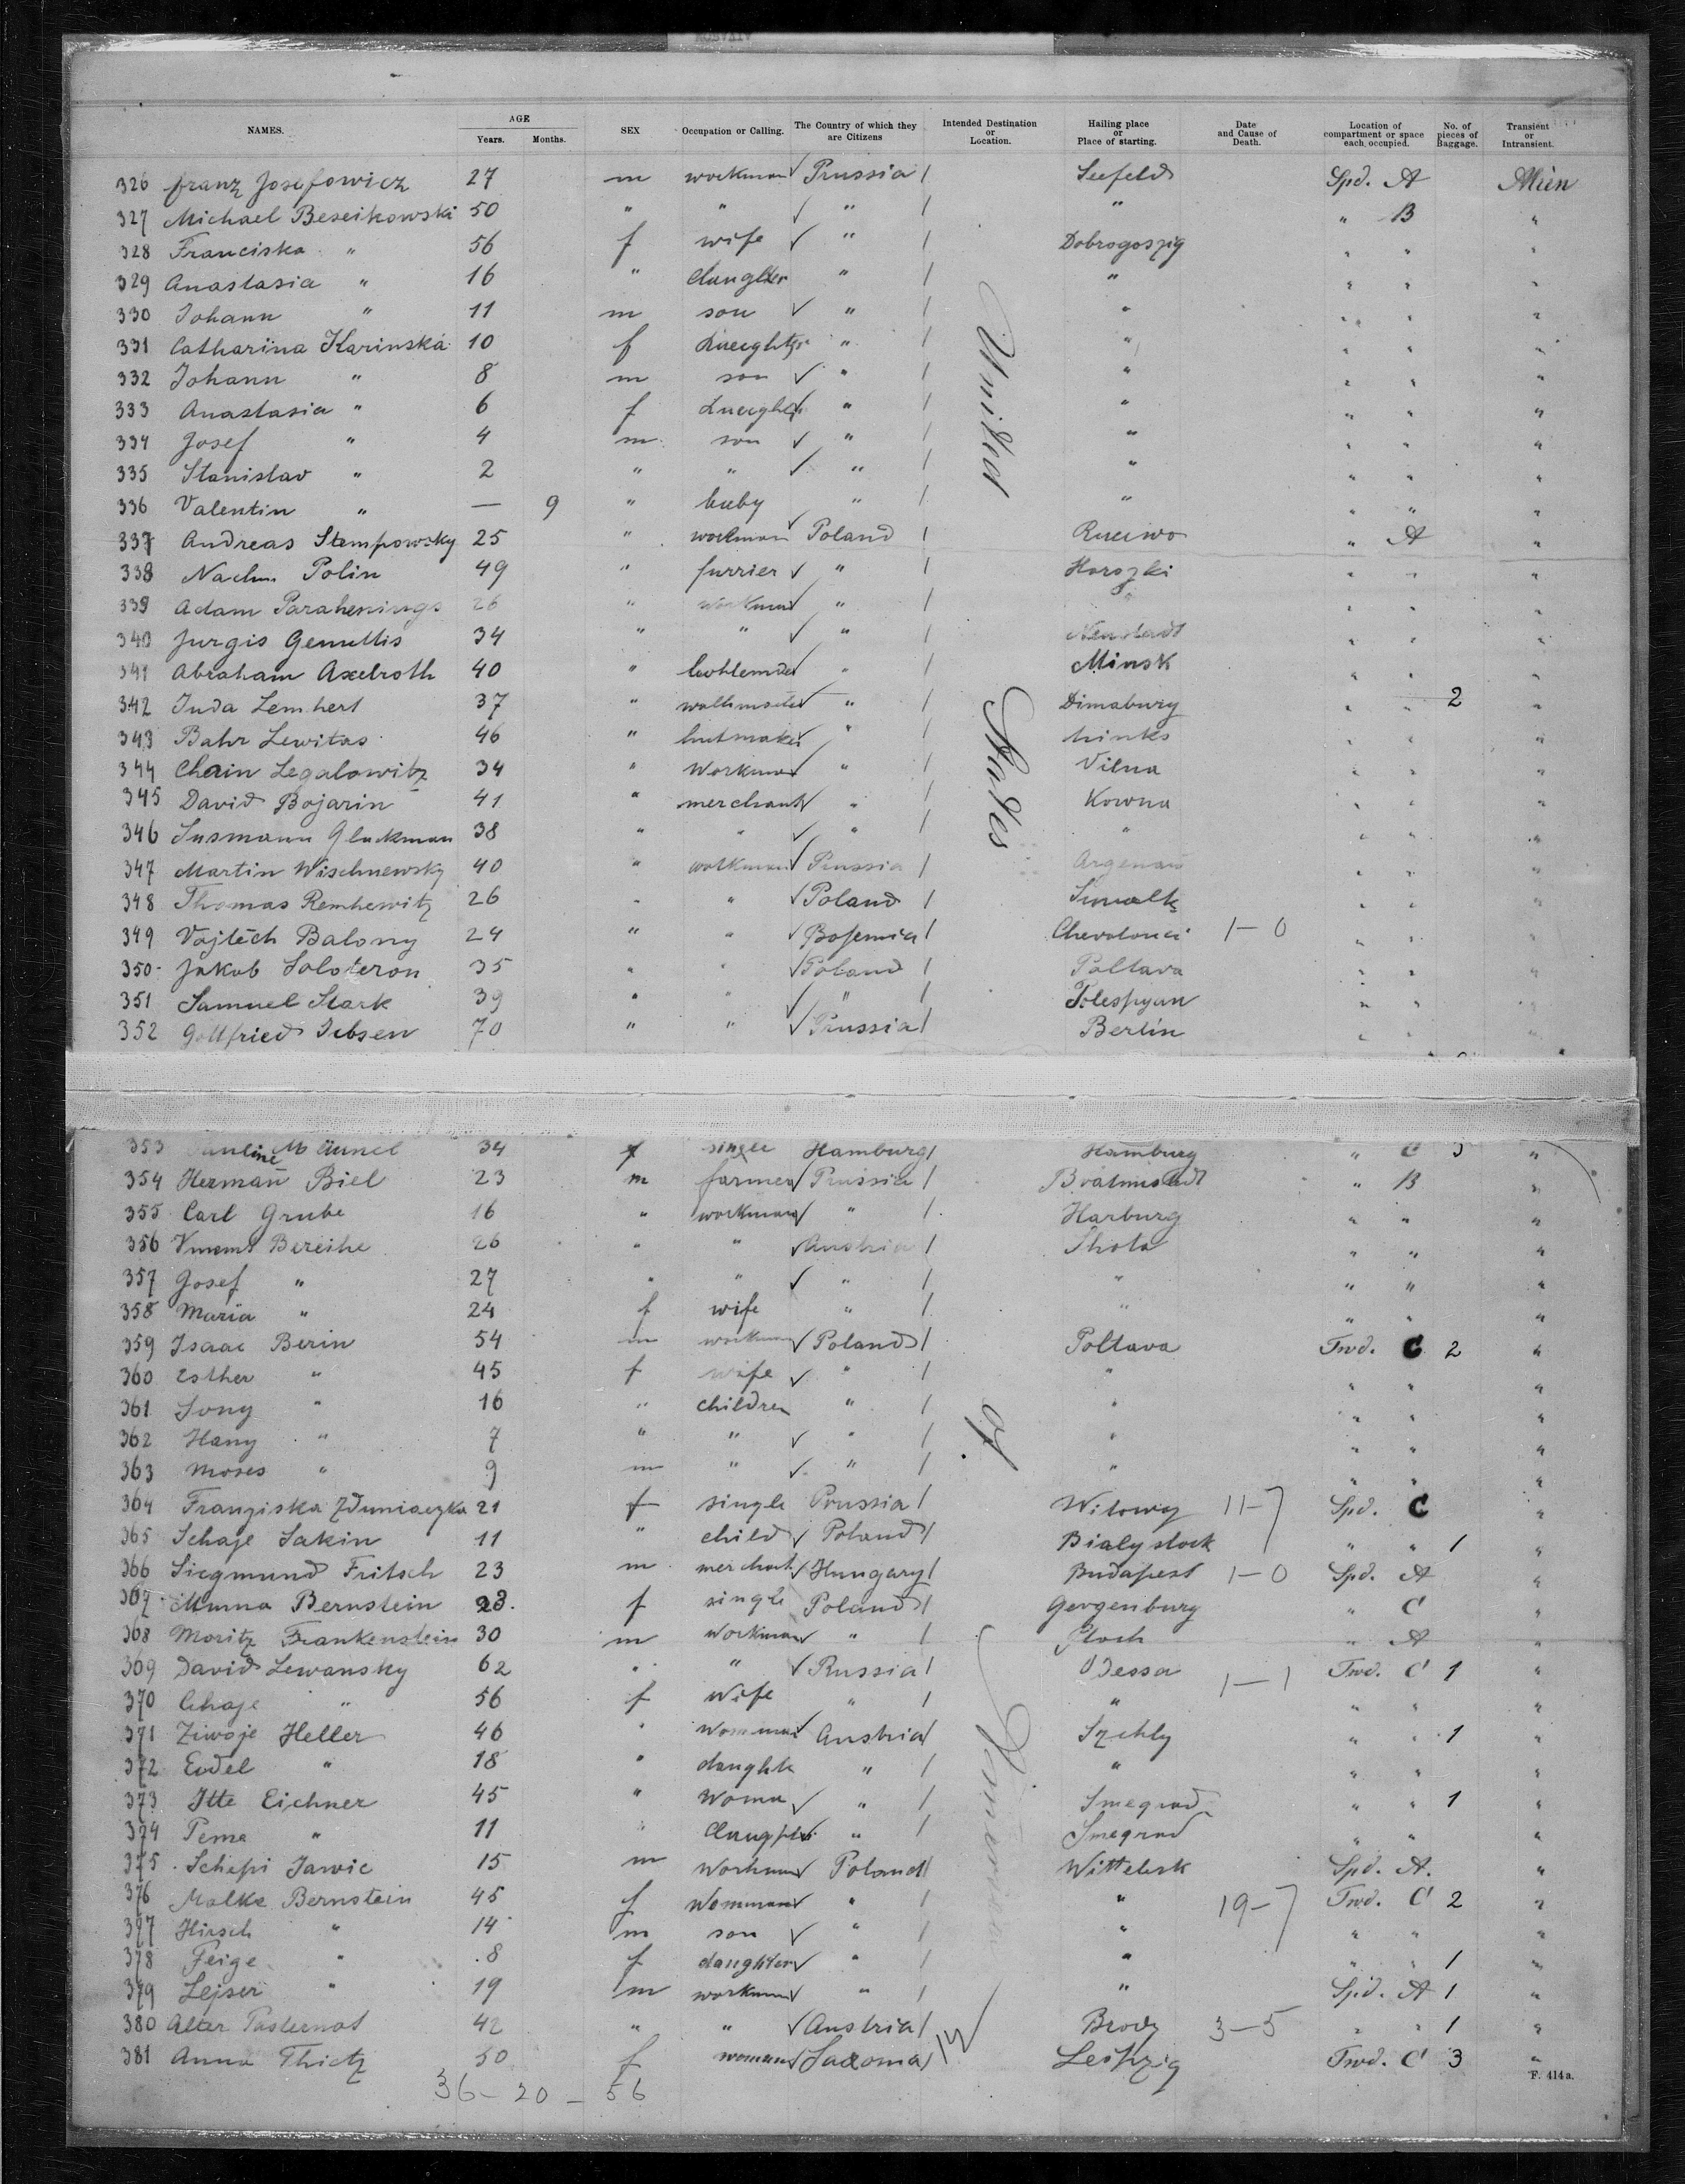 NAMES. AGE Years. Months. SEX Occupation or Calling. The Country of which they are Citizens Intended Destination or Location. Hailing place or Place of starting. Date and Cause of Death. Location of compartment or space each, occupied. No. of pieces of Baggage. Transient or Intransient.
326 Franz Josefowicz 27 m workman Prussia Seefeld Spd. A
327 Michael Beseikowski 50 " " " " " B "
328 Franciska " 56 f wife " Dobrogoszig " " "
329 Anastasia " 16 " daughter " " " " "
330 Johann " 11 m son " " " " "
331 Catharina Karinska 10 f daughter " " " " "
332 Johann " 8 m son " " " " "
333 Anastasia " 6 f daughter " " " " "
334 Josef " 4 m son " " " " "
335 Stanislav " 2 " " " " " " "
336 Valentin " — 9 " baby " " " " "
337 Andreas Stempowsky 25 " workman Poland " A "
338 Nachm. Polin 49 " furrier " Horozki " " "
339 Adam 26 " workman " " " " "
340 Jurgis 34 " " " Neustadt " " "
341 Abraham Axelroth 40 " " Minsk " " "
342 Juda Lemhert 37 " " Dimaburg " " 2 "
343 Bahr Lewitas 46 " hutmaker " " " "
344 Chain Legalowitz 34 " Workman " Vilna " " "
345 David Bojarin 41 " merchant " Kowna " " "
346 Susmann Gluckman 38 " " " " " " "
347 Martin Wischnewsky 40 " workman Prussia Argenau " " "
348 Thomas Remhewitz 26 " " Poland " " "
349 Vojtěch Balony 24 " " Bohemia 1-0 " " "
350 Jakob Soloteron 35 " " Poland Poltava " " "
351 Samuel Stark 39 " " " " " "
352 Gottfried Jebsen 70 " " Prussia Berlin " " "
353 Pauline 34 f single Hamburg Hamburg " C "
354 Herman Biel 23 m farmer Prussia " B "
355 Carl Grube 16 " workman " Harburg " " "
356 26 " " Austria " " "
357 Josef " 27 " " " " " " "
358 Maria " 24 f wife " " " " "
359 Isaac Berin 54 m workman Poland Poltava Twd. C 2 "
360 Esther " 45 f wife " " " " "
361 Sony " 16 " children " " " " "
362 Hany " 7 " " " " " " "
363 Moses " 9 m " " " " " "
364 Franziska Zduniaczka 21 f single Prussia 11-7 Spd. C "
365 Schaje Sakin 11 " child Poland Bialystock " " 1 "
366 Siegmund Fritsch 23 m merchant Hungary Budapest 1-0 Spd. A "
367 Bernstein 23 f single Poland Georgenburg " C "
368 Moritz Frankenstein 30 m Workman " Ploch " A "
369 David Lewansky 62 " " Russia Odessa 1-1 Twd. C 1 "
370 Chaje " 56 f Wife " " " " "
371 Ziwoje Heller 46 " Austria " " 1 "
372 Eudel " 18 " " " " " "
373 Itte Eichner 45 " Woman " Smegrod " " 1 "
374 Pema " 11 " daughter " Smegrod " " "
375 Schepi Jawic 15 m Workman Poland Wittebsk Spd. A. "
376 Malke Bernstein 45 f " " 19-7 Twd. C 2 "
377 Hirsch " 14 m son " " " " "
378 Feige " 8 f daughter " " " " 1 "
379 Lejser " 19 m workman " " Spd. A 1 "
380 Alter Pasternat 42 " " Austria Brody 3-5 " " 1 "
381 Anna Thietz 50 f woman Saxonia Leipzig Twd. C 3 "
United States of
36-20-56
F. 414a.